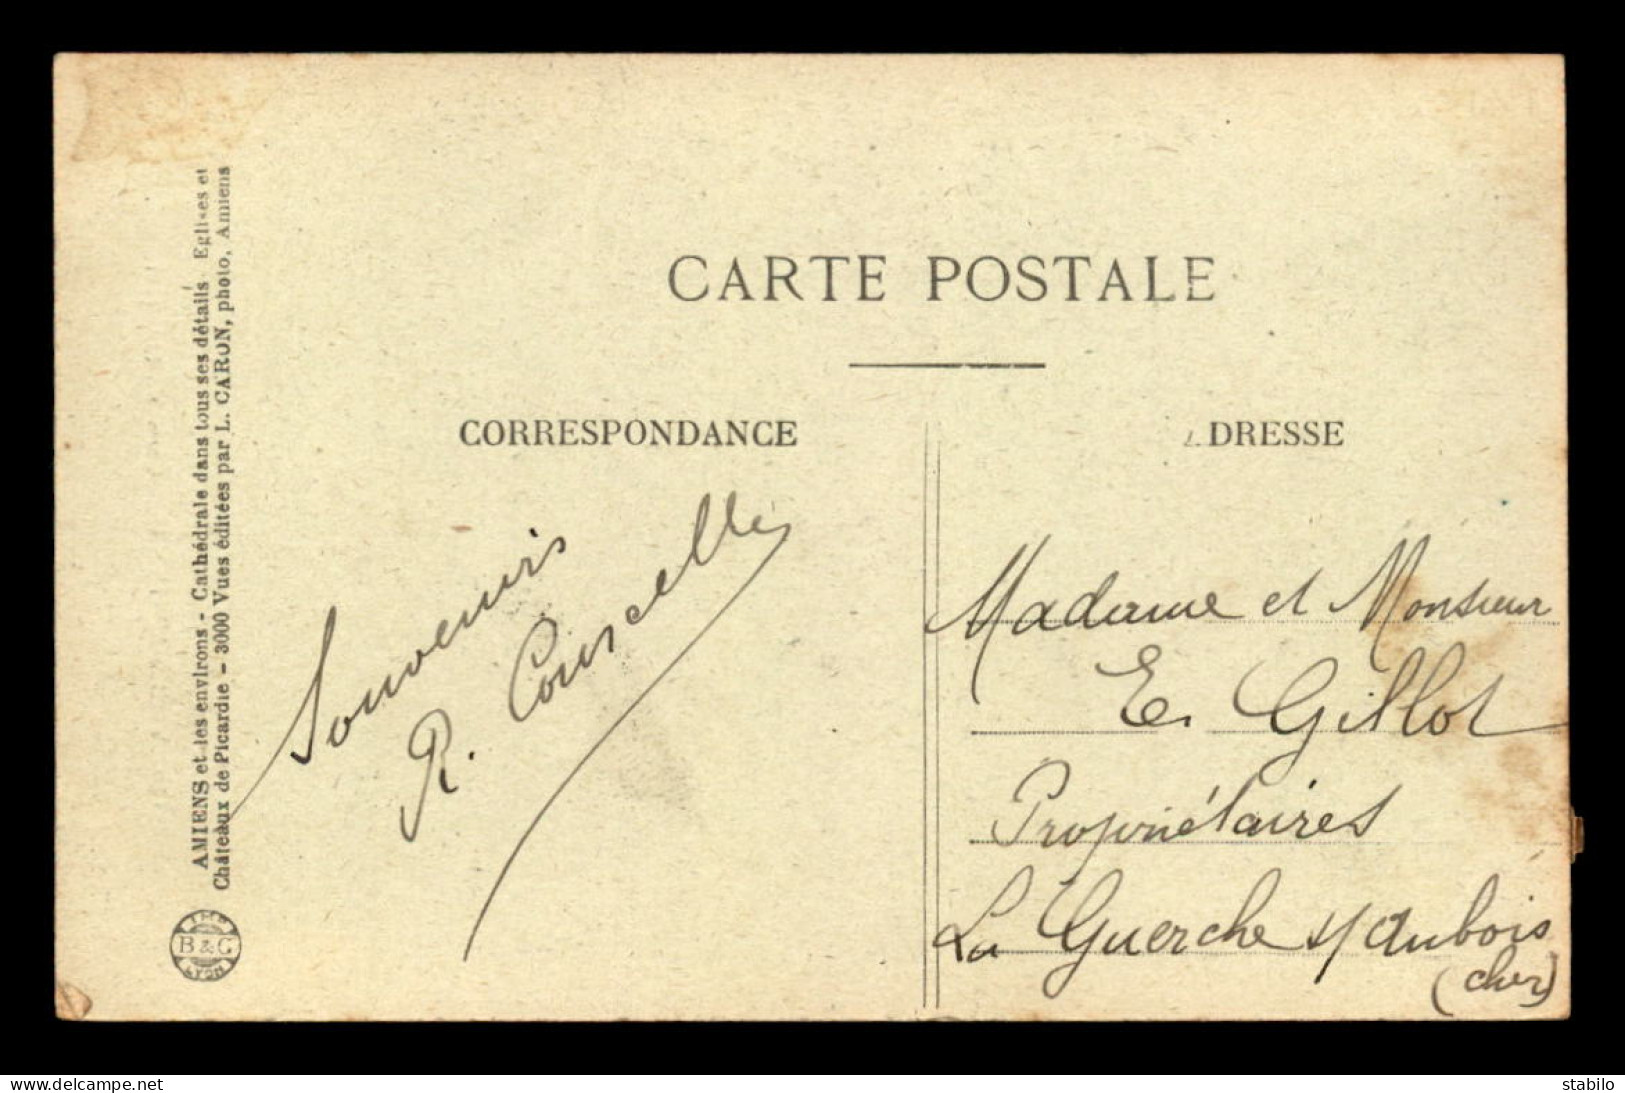 CARTE POSTALE
CORRESPONDANCE
ADRESSE
AMIENS et les environs - Cathédrale dans tous ses détails Eglises et
Châteaux de Picardie - 3000 Vues éditées par L. CARON, photo, Amiens
IMP
B & G
LYON
Souvenirs
R. Courcelles
Madame et Monsieur
E. Gillot
Propriétaires
La Guerche s/ Aubois
(Cher)
www.delcampe.net
stabilo